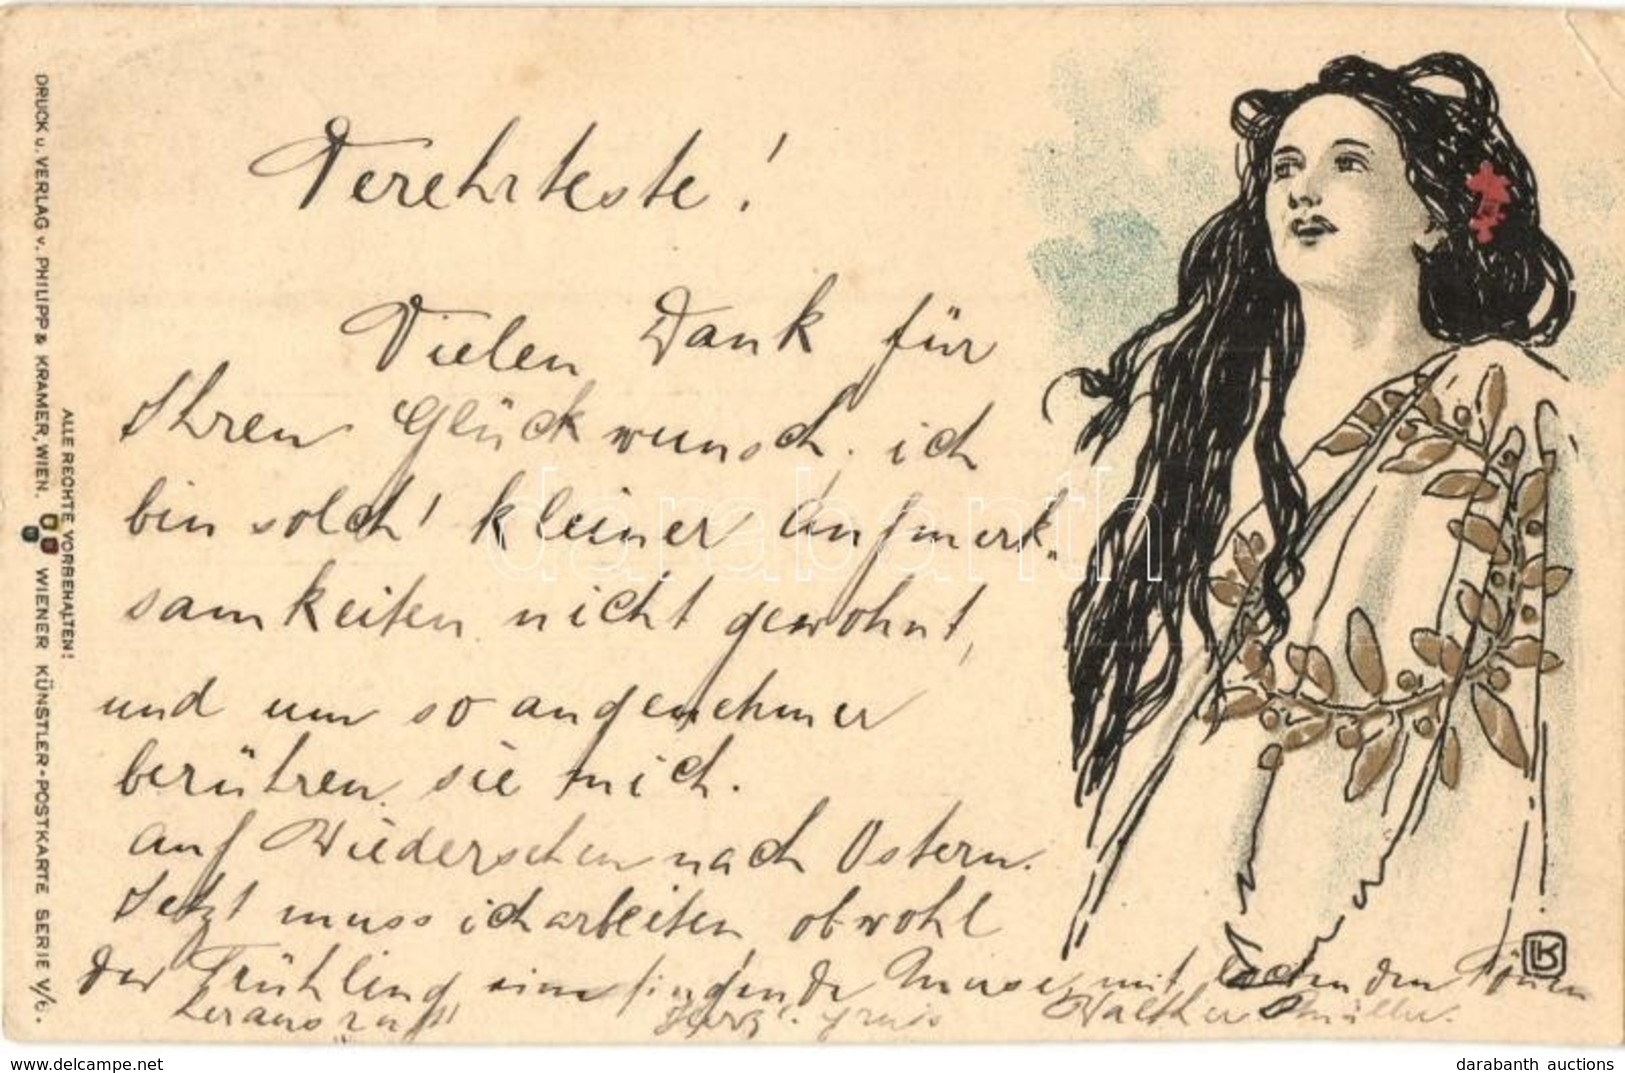 Verehrteste!
Vielen Dank für
Ihren Glückwunsch. ich
bin solch' kleiner Aufmerk-
samkeiten nicht gewohnt,
und um so angenehmer
berühren sie mich.
Auf Wiedersehen nach Ostern.
Jetzt muss ich arbeiten obwohl
der Frühling eine singende Muse, mit lockenden Tönen
heraus ruft!
Herzl. Gruss
Walther Müller.
DRUCK u. VERLAG v. PHILIPP & KRAMER, WIEN. WIENER KÜNSTLER-POSTKARTE SERIE V/6.
ALLE RECHTE VORBEHALTEN!
LK
darabanth
www.delcampe.net
darabanth auctions